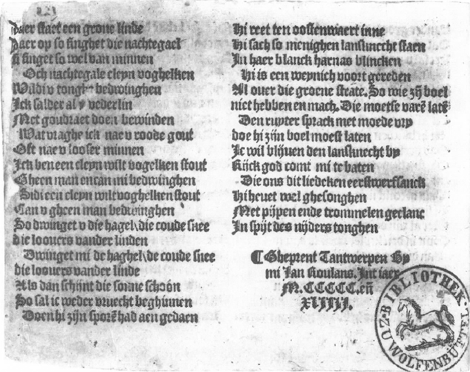 221
Daer staet een groene linde
Daer op so singhet die nachtegael
Si singet so wel van minnen
Och nachtegale cleyn voghelken
Wildi v tonghe bedwinghen
Ick salder al v vederlin
Met goudraet doen bewinden
Wat vraghe ick nae v roode gout
Oft nae v loosee minnen
Ick ben een cleyn wilt vogelken stout
Gheen man en can mi bedwinghen
Sidi een cleyn wilt voghelken stout
Can v gheen man bedwinghen
So dwinget v die hagel die coude snee
die loouers vander linden
Dwinget mi de haghel de coude snee
die loouers vander linde
Als dan schijnt die sonne schoon
So sal ic weder vruecht beghinnen
Doen hi zijn sporē had aen gedaen
Hi reet ten oostenwaert inne
Hi sach so menighen lansknecht staen
In haer blanck harnas blincken
Hi is een weynich voort gereden
Al ouer die groene strate, So wie zij boel
niet hebben en mach, Die moetse varē latē
Den ruyter sprack met moede vry
doe hi zijn boel moest laten
Ic wil blijuen den lansknecht by
Rijck god comt mi te baten
Die ons dit liedeken eerstwerf sanck
Hi heuet wel ghesonghen
Met pijpen ende trommelen geclanc
In spijt des nijders tonghen
¶ Gheprent Tantwerpen By
mi Jan Roulans. Int iaer
M.CCCCC.eñ
XLIIII.
BIBLIOTHEK ZU WOLFENBÜTTEL